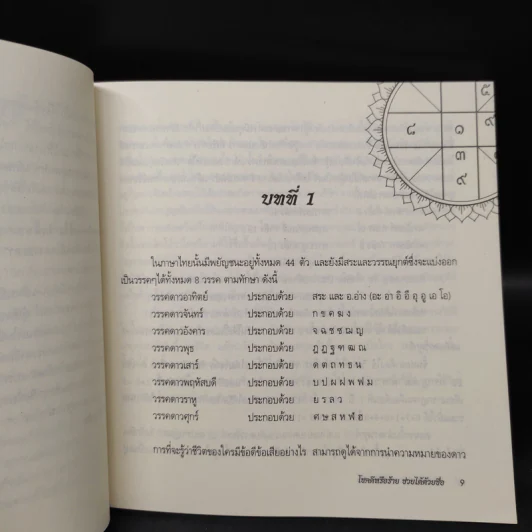 ๘ ๑
บทที่ 1
ในภาษาไทยนั้นมีพยัญชนะอยู่ทั้งหมด 44 ตัว และยังมีสระและวรรณยุกต์ซึ่งจะแบ่งออก
เป็นวรรคๆได้ทั้งหมด 8 วรรค ตามทักษา ดังนี้
วรรคดาวอาทิตย์ ประกอบด้วย สระ และ อ.อ่าง (อะ อา อิ อี อุ อู เอ โอ)
วรรคดาวจันทร์ ประกอบด้วย ก ข ค ฆ ง
วรรคดาวอังคาร ประกอบด้วย จ ฉ ช ซ ฌ ญ
วรรคดาวพุธ ประกอบด้วย ฎ ฏ ฐ ฑ ฒ ณ
วรรคดาวเสาร์ ประกอบด้วย ด ต ถ ท ธ น
วรรคดาวพฤหัสบดี ประกอบด้วย บ ป ผ ฝ พ ฟ ม
วรรคดาวราหู ประกอบด้วย ย ร ล ว
วรรคดาวศุกร์ ประกอบด้วย ศ ษ ส ห ฬ ฮ
การที่จะรู้ว่าชีวิตของใครมีข้อดีข้อเสียอย่างไร สามารถดูได้จากการนำความหมายของดาว
โชคดีหรือร้าย ช่วยได้ด้วยชื่อ 9